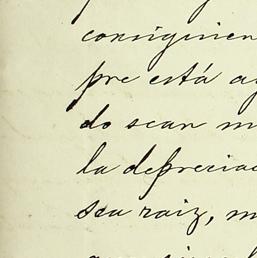 consiguien
pre está a
do sean m
la deprecia
sea raiz, m